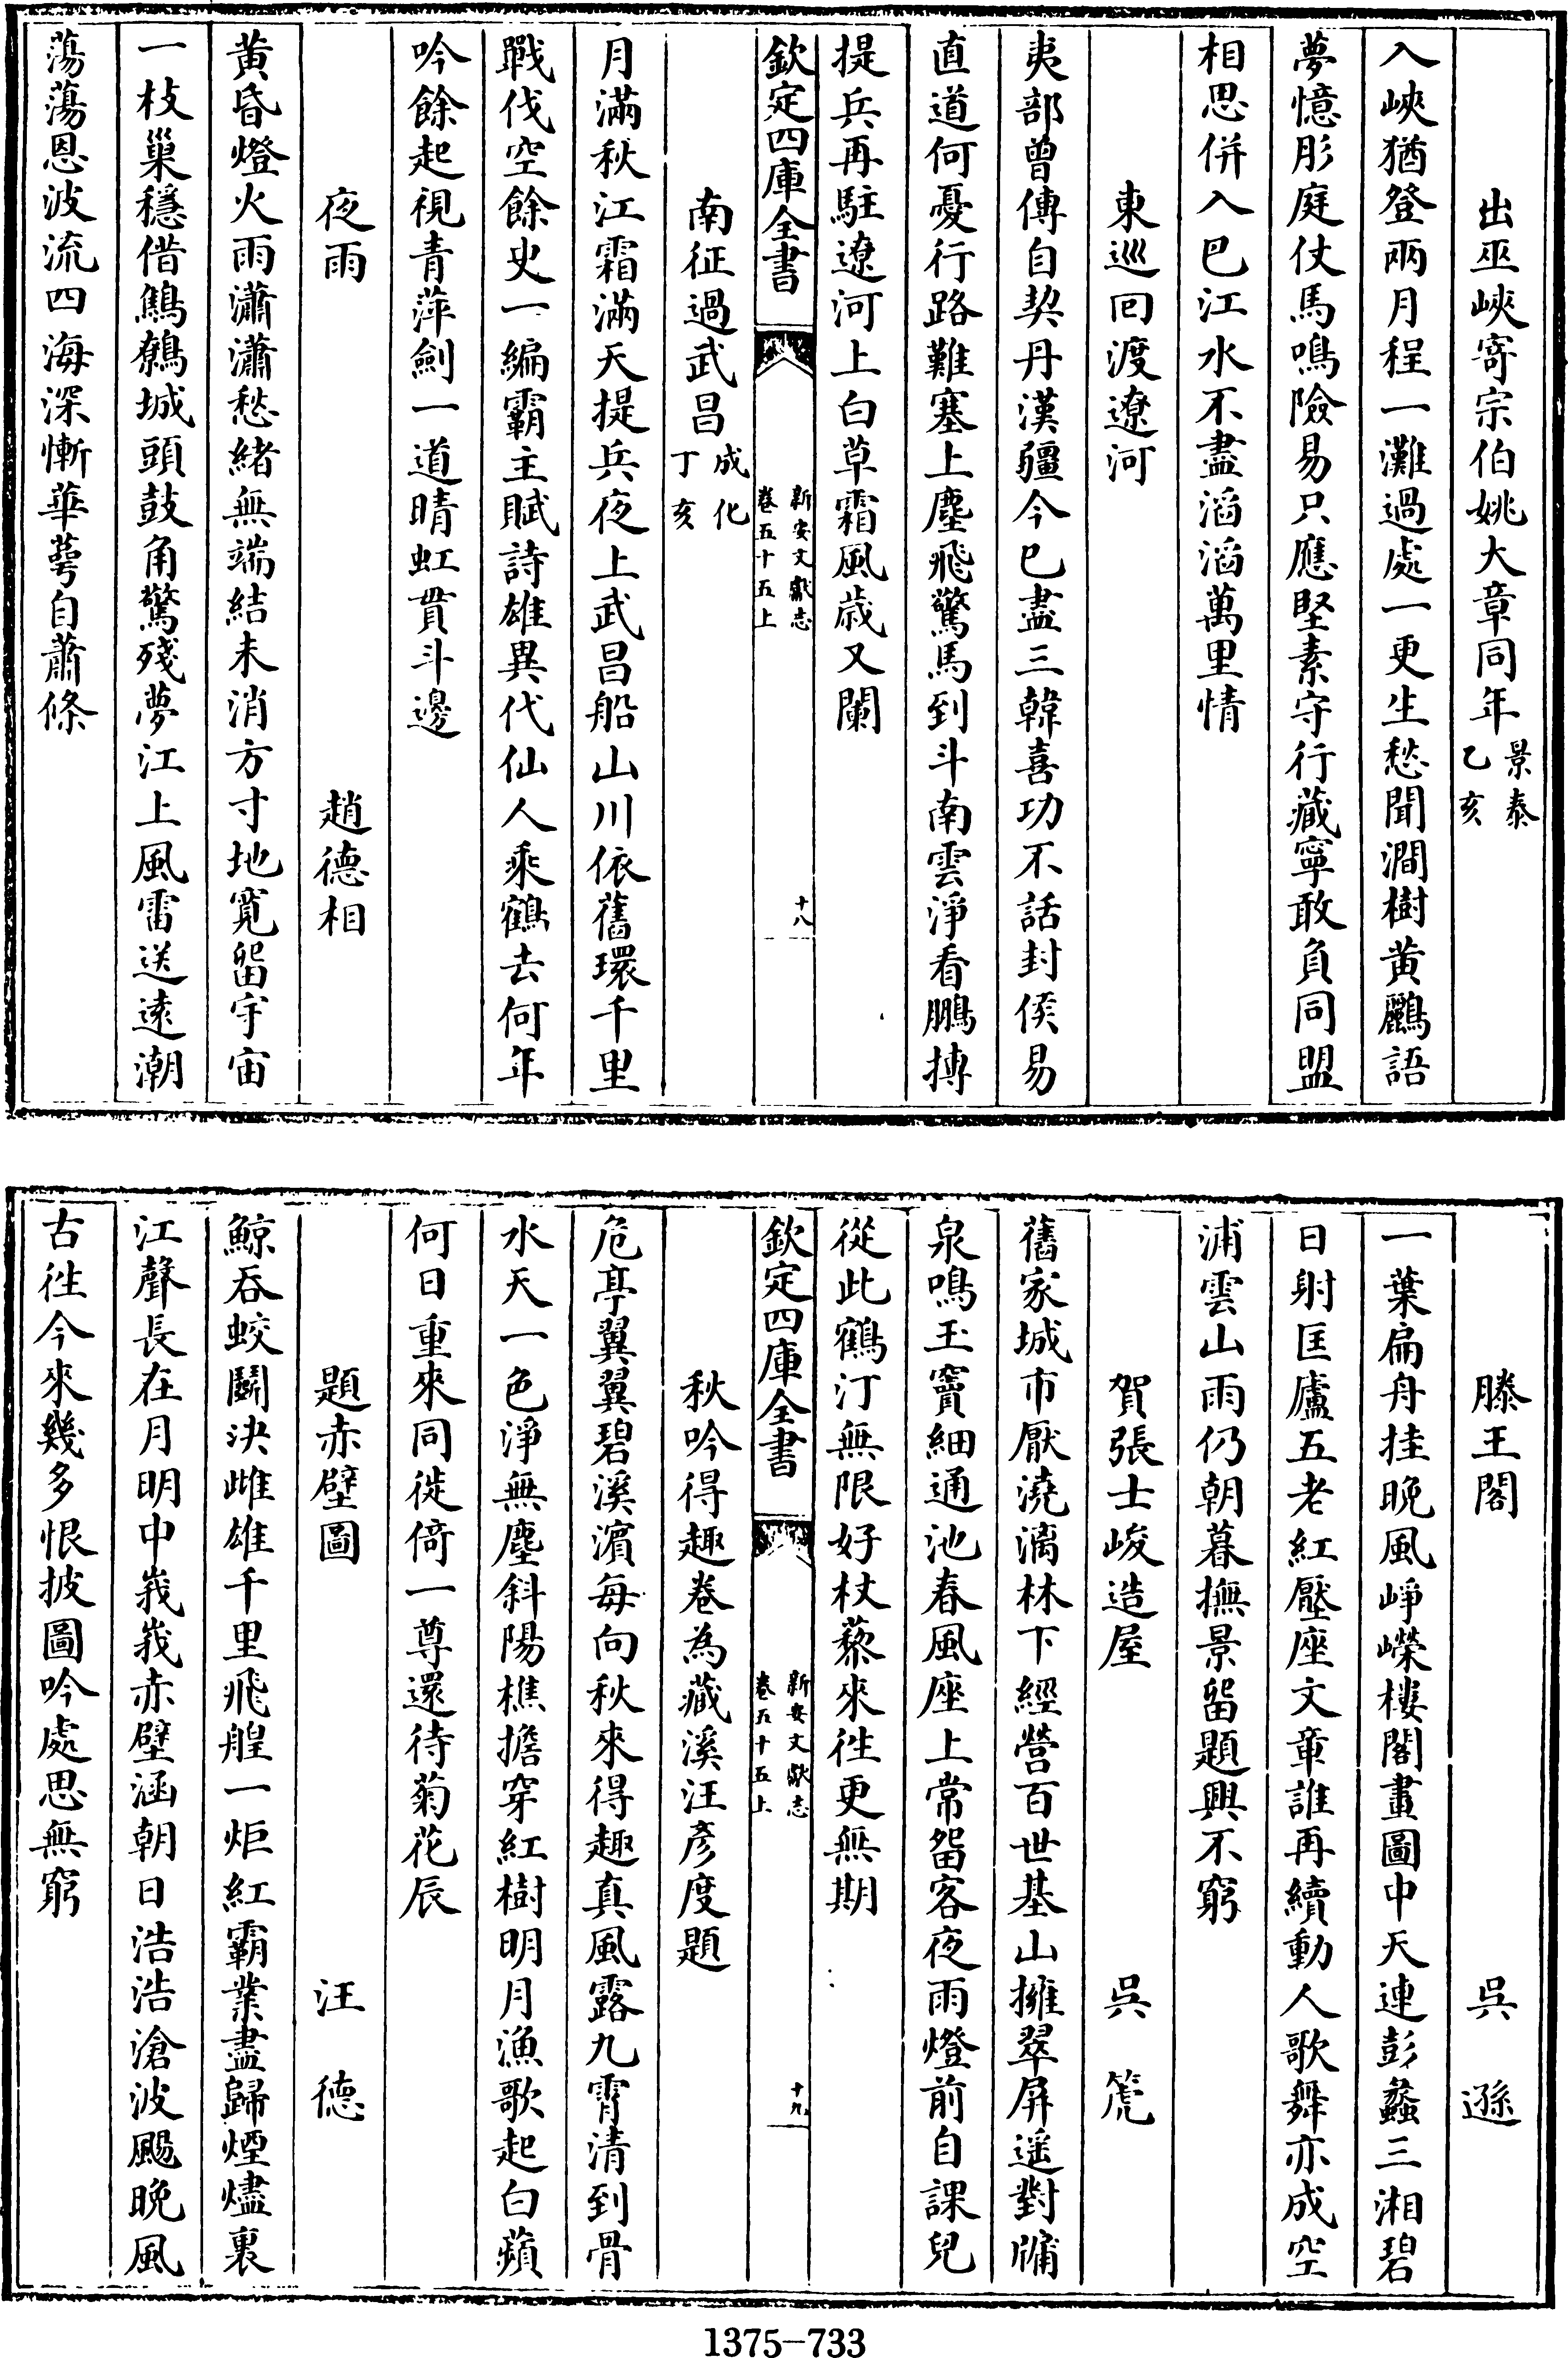 出巫峽寄宗伯姚大章同年景泰乙亥
入峽猶登兩月程一灘過處一更生愁聞澗樹黄鸝語
夢憶彤庭仗馬鳴險易只應堅素守行藏寧敢負同盟
相思併入巴江水不盡滔滔萬里情
東巡回渡遼河
夷部曾傳自契丹漢疆今已盡三韓喜功不話封侯易
直道何憂行路難塞上塵飛驚馬到斗南雲淨看鵬摶
提兵再駐遼河上白草霜風歲又闌
欽定四庫全書 新安文獻志卷五十五上 十八
南征過武昌成化丁亥
月滿秋江霜滿天提兵夜上武昌船山川依舊環千里
戰伐空餘史一編霸主賦詩雄異代仙人乘鶴去何年
吟餘起視青萍劍一道晴虹貫斗邊
夜雨 趙德相
黄昏燈火雨瀟瀟愁緒無端結未消方寸地寛留宇宙
一枝巢穩借鷦鷯城頭鼓角驚殘夢江上風雷送遠潮
蕩蕩恩波流四海深慚華蕚自蕭條
滕王閣 吳遜
一葉扁舟挂晚風崢嶸樓閣畫圖中天連彭蠡三湘碧
日射匡廬五老紅壓座文章誰再續動人歌舞亦成空
浦雲山雨仍朝暮撫景留題興不窮
賀張士峻造屋 吳箎
舊家城市厭澆漓林下經營百世基山擁翠屏遥對牗
泉鳴玉竇細通池春風座上常留客夜雨燈前自課兒
從此鶴汀無限好杖藜來徃更無期
欽定四庫全書 新安文獻志卷五十五上 十九
秋吟得趣卷為藏溪汪彥度題
危亭翼翼碧溪濱每向秋來得趣真風露九霄清到骨
水天一色淨無塵斜陽樵擔穿紅樹明月漁歌起白蘋
何日重來同徙倚一尊還待菊花辰
題赤壁圖 汪德
鯨吞蛟鬬決雌雄千里飛艎一炬紅霸業盡歸煙燼裏
江聲長在月明中峩峩赤壁涵朝日浩浩滄波颺晚風
古徃今來幾多恨披圖吟處思無窮
1375-733